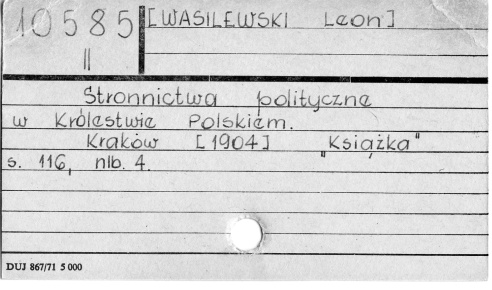 10585
II
[WASILEWSKI Leon]
Stronnictwa polityczne
w Królestwie Polskiem.
Kraków [1904] "Książka"
s. 116, nlb. 4.
DUJ 867/71 5 000